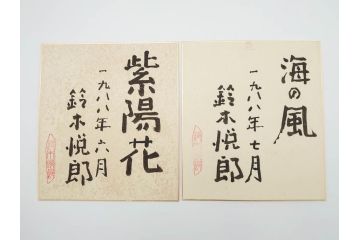 紫陽花
一九八八年六月
鈴木悦郎
海の風
一九八八年七月
鈴木悦郎